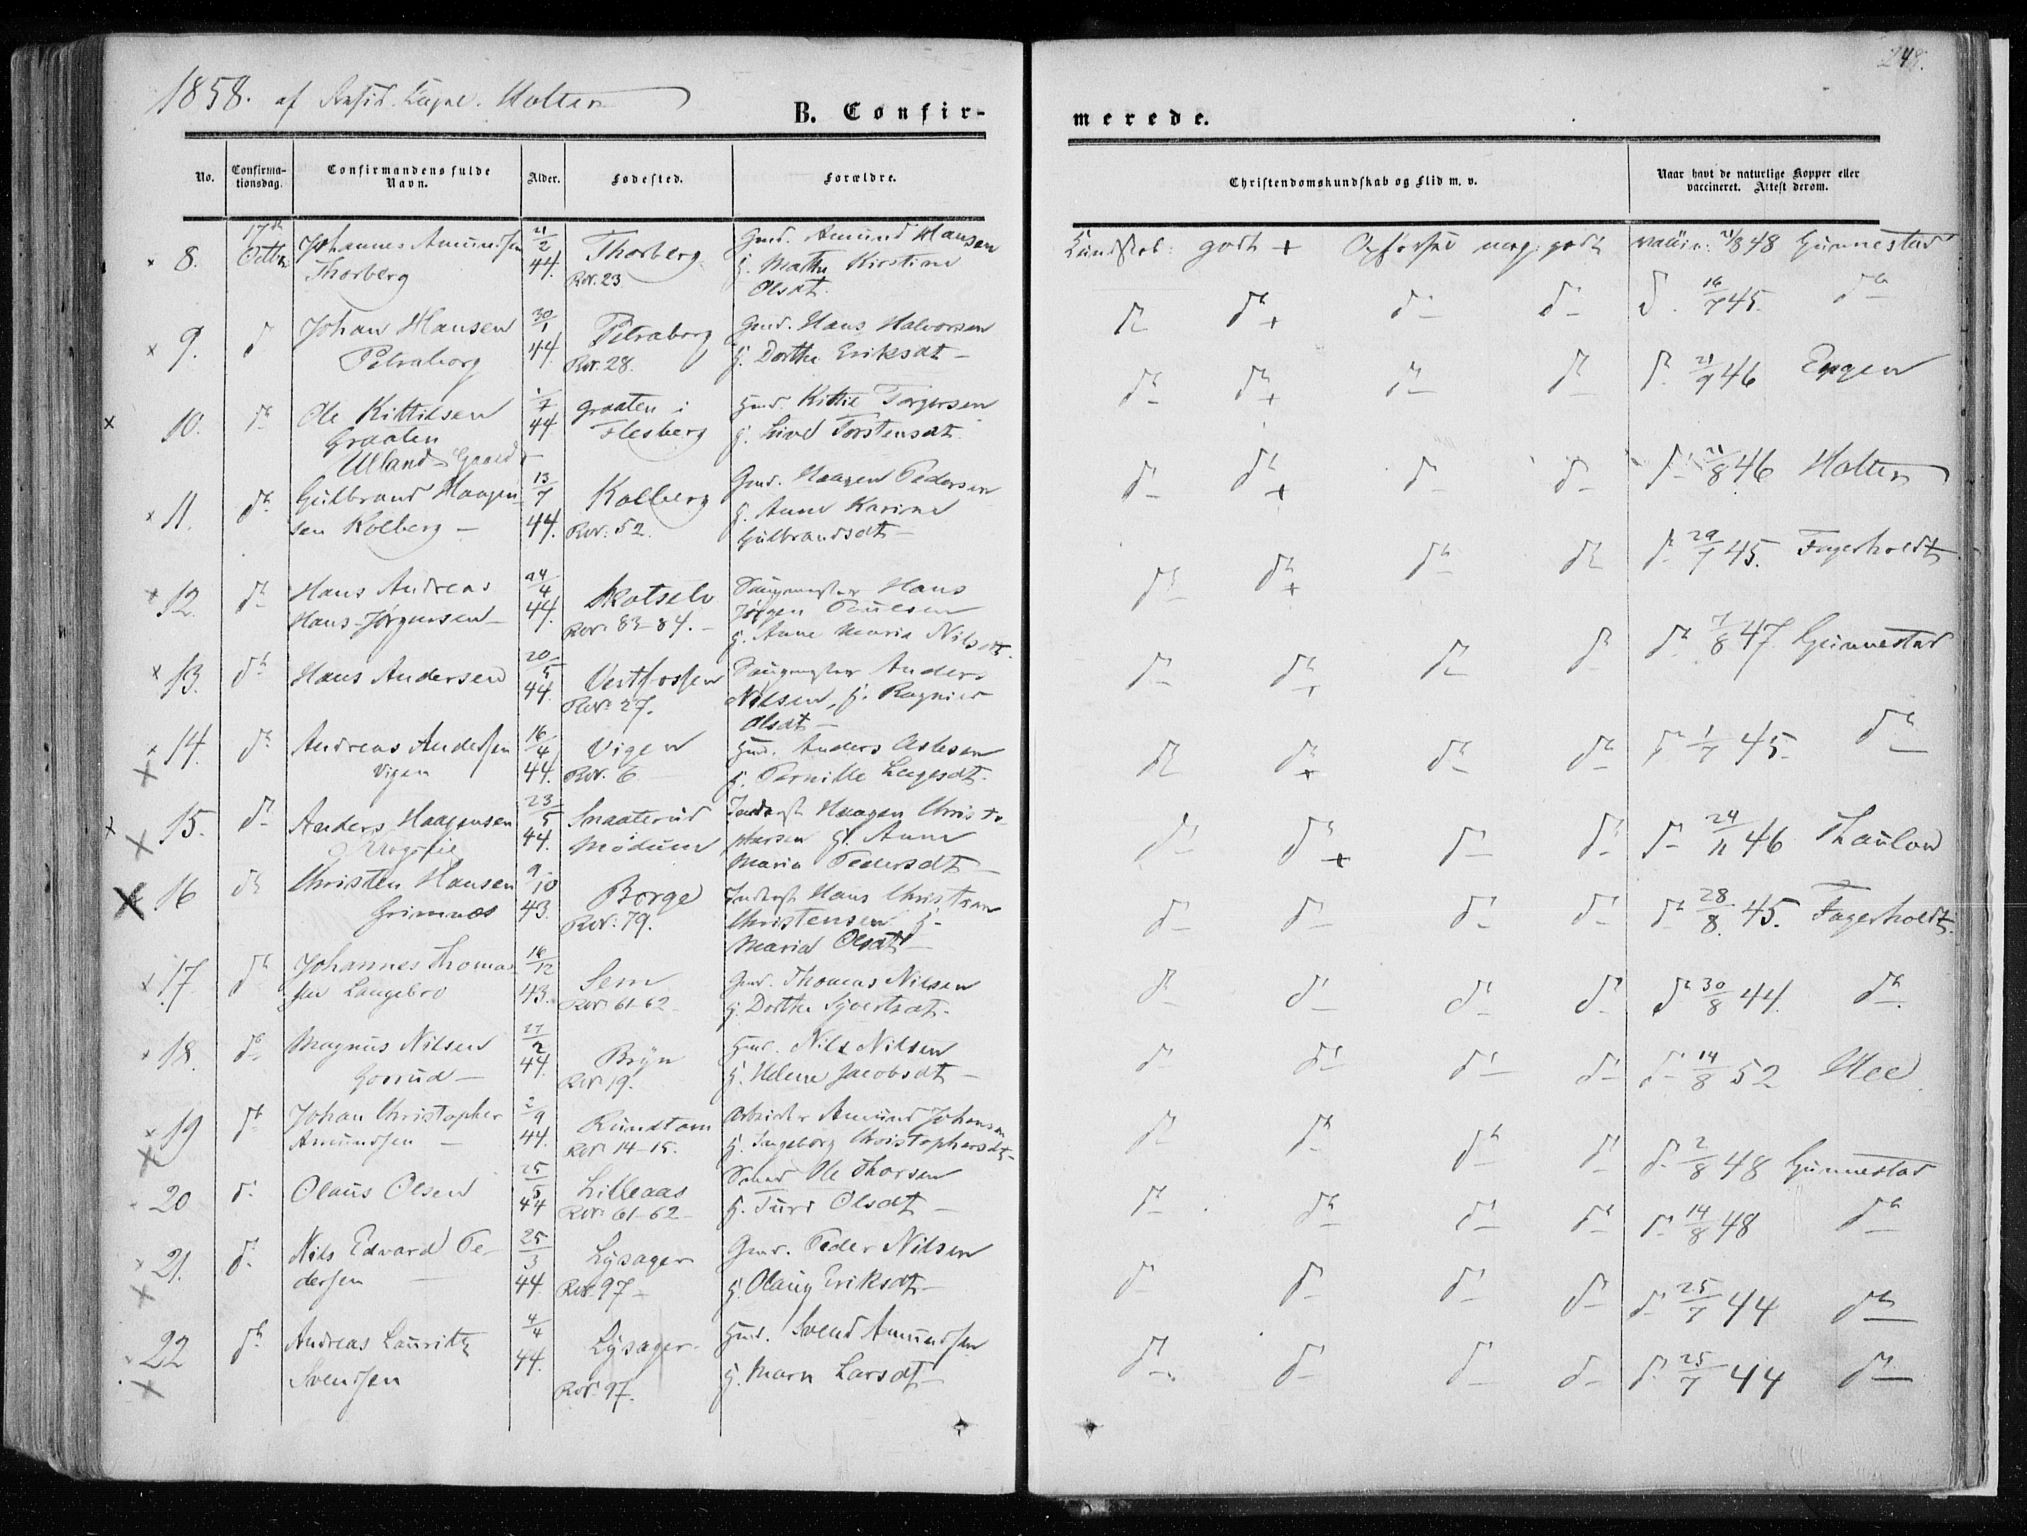 248.
1858. af Holter
B. Confir-
merede.
No. Confirma-tionsdag. Confirmandens fulde Navn. Alder. Fødested. Forældre. Christendomskundskab og Flid m. v. Naar havt de naturlige Kopper eller vaccineret. Attest derom.
8. 17de Octbr Johannes Amundsen 21/2 44. Thorberg Gmd. Amund Hansen Kundskab: godt + Opførsel meg: godt 21/8 48 Gunnestad
Thorberg Rev. 23 H. Mathe Kirstine
Olsdt.
9. Johan Hansen 30/1 44. Petraborg Gmd. Hans Halvorsen 16/7 45.
Petraborg Rev. 28. H. Dorthe Eriksdt
10. Ole Kittilsen 7 44 Graaten i Hmd. Kittil Torgersen 21/9 46 Engen
Graaten Flesberg H. Live Torstensdt
Ulland Gaard
11. Gulbrand Haagen 13/7 44. Kolberg Gmd. Haagen Pedersen 8 46 Holter
sen Kolberg Rev. 52. H. Anne Karine
Gulbrandsdt
12. Hans Andreas 24/4 44. Skotselv Hans 29/7 45. Fagerholdt
Hans-Jørgensen Rev. 83-84. Jørgen Paulsen
H. Anne Maria Nilsdt.
13. Hans Andersen 20/5 44. Vestfossen Anders 7/8 47 Gunnestad
Rev. 27. Nilsen, H. Ragnild
Olsdt
14. Andreas Andersen 16/4 44. Vigen Hmd. Anders Aslesen 1/7 45
Vigen Rev. 6 H. Pernille
15. Anders Haagensen 23/5 44. Smaaterud Inderst Haagen Christo- 24/11 46 Thaulow
Modum phersen H. Anne
Maria Pedersdt
16 Christen Hansen 9/10 43. Borge Inderst Hans Christian 28/8 45. Fagerholdt
Grimnæs Rev. 79. Christensen H.
Maria Olsdt
17. Johannes Thomas 16/12 43. Sem Gmd. Thomas Nilsen 30/8 44.
sen Langebro Rev. 61-62 H. Dorthe Syvertsdt.
18. Magnus Nilsen 27/2 44. Bryn Hmd. Nils Nilsen 14/8 52
Gorrud Rev. 19. H. Helene Jacobsdt
19 Johan Christopher 2/9 44. Rundtom Arbeider Amund Johansen 2/8 48 Gunnestad
Amundsen Rev. 14-15. H. Ingeborg Christophersdt
20 Olaus Olsen 25/5 44 Lilleaas Ole Thorsen 14/8 48
Rev. 61-62 H. Turi Olsdt
21. Nils Edvard Pe- 25/3 44. Lysager Gmd. Peder Nilsen 25/7 44
dersen Rev. 97 H. Olaug Eriksdt
22 Andreas Lauritz 4/4 44. Lysager Hmd. Svend Amundsen 25/7 44
Svendsen Rev. 97. H. Marn Larsdt